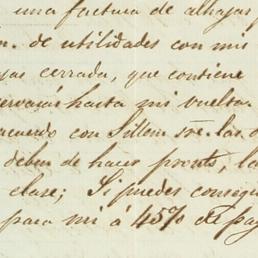 una factura de alhajas
de utilidades con mis
cerrada, que contiene
hasta mi vuelta.
acuerdo con las
deben de hacer pronto, la
clase; Si puedes consegu
para mi á 45% de pag